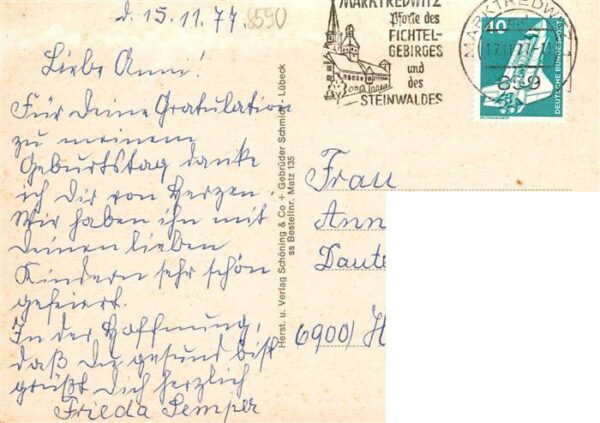 d. 15. 11. 77
8590
Liebe Anni!
Für Deine Gratulation
zu meinem
Geburtstag danke
ich Dir von Herzen.
Wir haben ihn mit
Deinen lieben
Kindern sehr schön
gefeiert.
In der Hoffnung,
daß Du gesund bist
grüßt Dich herzlich
Frieda Semper
Herst. u. Verlag Schöning & Co + Gebrüder Schmidt, Lübeck
ss Bestellnr. Matz 135
MARKTREDWITZ
Pforte des
FICHTEL-
GEBIRGES
und
des
STEINWALDES
MARKTREDWITZ
859
40
DEUTSCHE BUNDESPOST
Frau
Ann
Daute
6900/ H